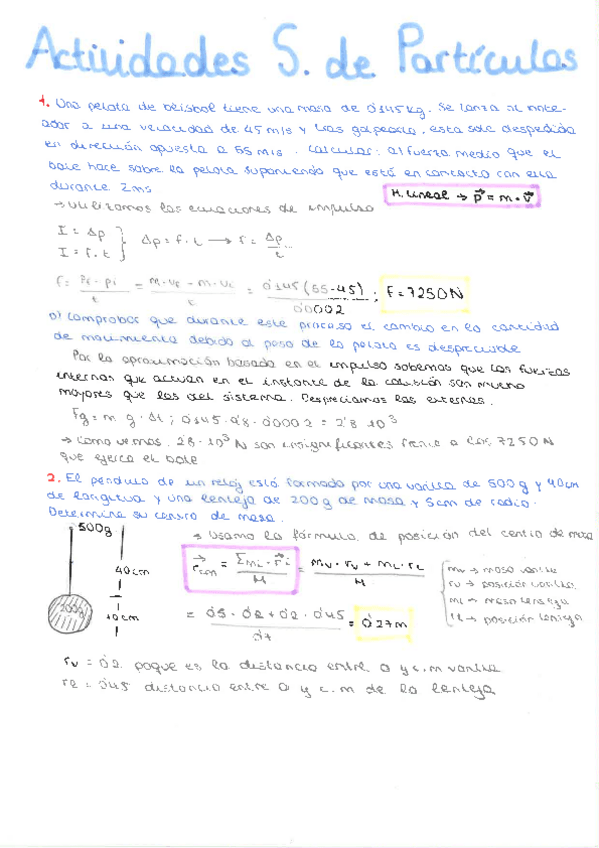 Actividades S. de Partículas
1. Una pelota de béisbol tiene una masa de 0'145 kg. Se lanza al bate-
ador a una velocidad de 45 m/s y tras golpearla, esta sale despedida
en dirección opuesta a 55 m/s. Calcular: a) fuerza media que el
bate hace sobre la pelota suponiendo que está en contacto con ella
durante 2ms
M. lineal → p⃗ = m · v⃗
→ Utilizamos las ecuaciones de impulso
I = Δp
I = F · t } Δp = F · t → F = Δp/t
F = (Pf - pi)/t = (m · vf - m · vi)/t = 0'145 (55 - 45)/0'0002 ; F = 7250N
b) Comprobar que durante este proceso el cambio en la cantidad
de movimiento debido al peso de la pelota es despreciable
Por la aproximación basada en el impulso sabemos que las fuerzas
internas que actuan en el instante de la colisión son mucho
mayores que las del sistema. Despreciamos las externas.
Fg = m · g · Δt ; 0'145 · 9'8 · 0'0002 = 2'8 · 10³
→ Como vemos 2'8 · 10³ N son insignificantes frente a los 7250 N
que ejerce el bate
2. El péndulo de un reloj está formado por una varilla de 500 g y 40 cm
de longitud y una lenteja de 200 g de masa y 5 cm de radio.
Determina su centro de masa.
500g
40cm
200g
10cm
→ Usamo la fórmula de posición del centro de masa
r⃗cm = Σmi · r⃗i / M = (mv · rv + mL · rL) / M
mv → masa varilla
rv → posición varilla
mL → masa lenteja
rL → posición lenteja
= (0'5 · 0'2 + 0'2 · 0'45) / 0'7 = 0'27m
rv = 0'2 poque es la distancia entre 0 y c.m varilla
re = 0'45 distancia entre 0 y c.m de la lenteja